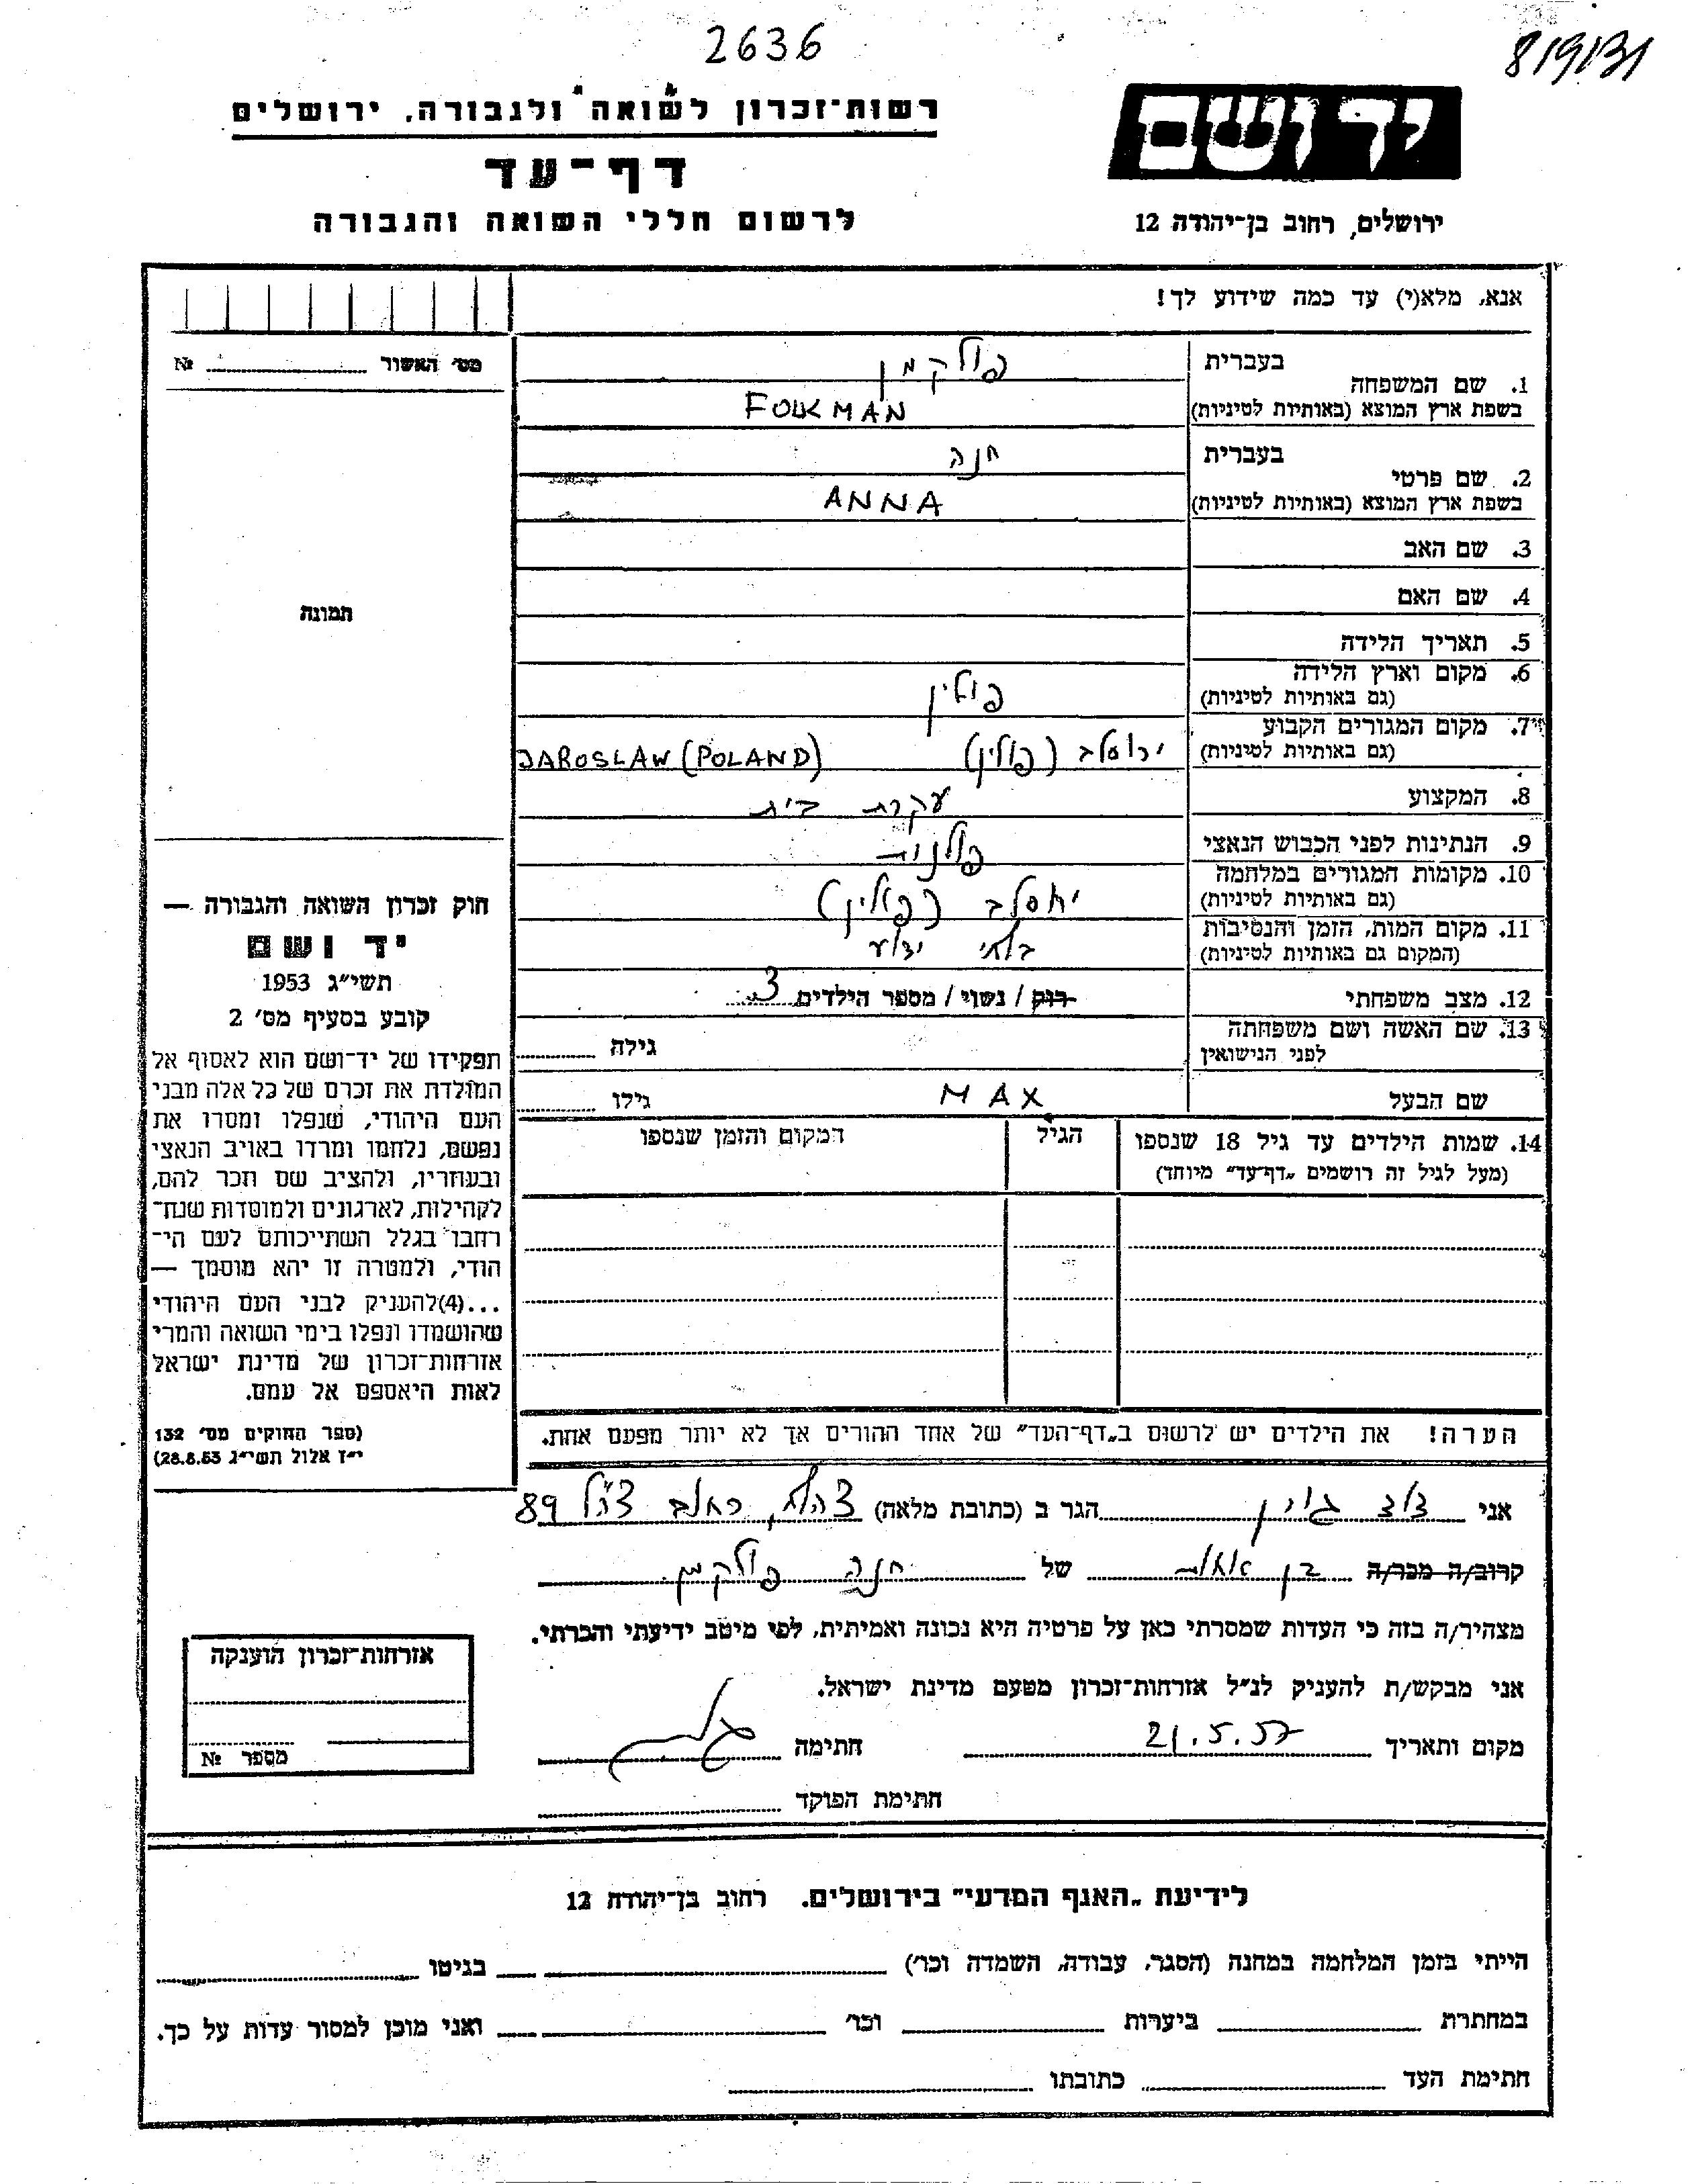 2636
8/9/31
רשות־זכרון לשואה ולגבורה, ירושלים
יד ושם
דף־עד
לרשום חללי השואה והגבורה
ירושלים, רחוב בן־יהודה 12
אנא, מלא(י) עד כמה שידוע לך!
מס׳ האשור №
1. שם המשפחה
בעברית פולקמן
בשפת ארץ המוצא (באותיות לטיניות) FOLKMAN
2. שם פרטי
בעברית חנה
בשפת ארץ המוצא (באותיות לטיניות) ANNA
3. שם האב
4. שם האם
תמונה
5. תאריך הלידה
6. מקום וארץ הלידה
(גם באותיות לטיניות) פולין
7. מקום המגורים הקבוע
(גם באותיות לטיניות) ירוסלב (פולין) JAROSLAW (POLAND)
8. המקצוע עקרת בית
9. הנתינות לפני הכבוש הנאצי פולנית
10. מקומות המגורים במלחמה
(גם באותיות לטיניות) ירוסלב (פולין)
11. מקום המות, הזמן והנסיבות
(המקום גם באותיות לטיניות) בלתי ידוע
12. מצב משפחתי רווק / נשוי / מספר הילדים 3
13. שם האשה ושם משפחתה
לפני הנישואין גילה
שם הבעל MAX גילו
14. שמות הילדים עד גיל 18 שנספו הגיל המקום והזמן שנספו
(מעל לגיל זה רושמים „דף־עד" מיוחד)
חוק זכרון השואה והגבורה —
יד ושם
תשי״ג 1953
קובע בסעיף מס׳ 2
תפקידו של יד־ושם הוא לאסוף אל
המולדת את זכרם של כל אלה מבני
העם היהודי, שנפלו ומסרו את
נפשם, נלחמו ומרדו באויב הנאצי
ובעוזריו, ולהציב שם וזכר להם,
לקהילות, לארגונים ולמוסדות שנח־
רחבו בגלל השתייכותם לעם הי־
הודי, ולמטרה זו יהא מוסמך —
...(4)להעניק לבני העם היהודי
שהושמדו ונפלו בימי השואה והמרי
אזרחות־זכרון של מדינת ישראל
לאות היאספם אל עמם.
(ספר החוקים מס׳ 132
י״ז אלול תשי״ג 28.8.53)
הערה! את הילדים יש לרשום ב„דף־העד" של אחד ההורים אך לא יותר מפעם אחת.
אני הגר ב (כתובת מלאה) צהלה, צה״ל 89
קרוב/ה מכר/ה בן של חנה פולקמן
מצהיר/ה בזה כי העדות שמסרתי כאן על פרטיה היא נכונה ואמיתית, לפי מיטב ידיעתי והכרתי.
אני מבקש/ת להעניק לנ״ל אזרחות־זכרון מטעם מדינת ישראל.
מקום ותאריך 21.5.57 חתימה
חתימת הפוקד
אזרחות־זכרון הוענקה
מספר №
לידיעת „האגף המדעי" בירושלים. רחוב בן־יהודה 12
הייתי בזמן המלחמה במחנה (הסגר, עבודה, השמדה וכו׳) בגיטו
במחתרת ביערות וכו׳ ואני מוכן למסור עדות על כך.
חתימת העד כתובתו